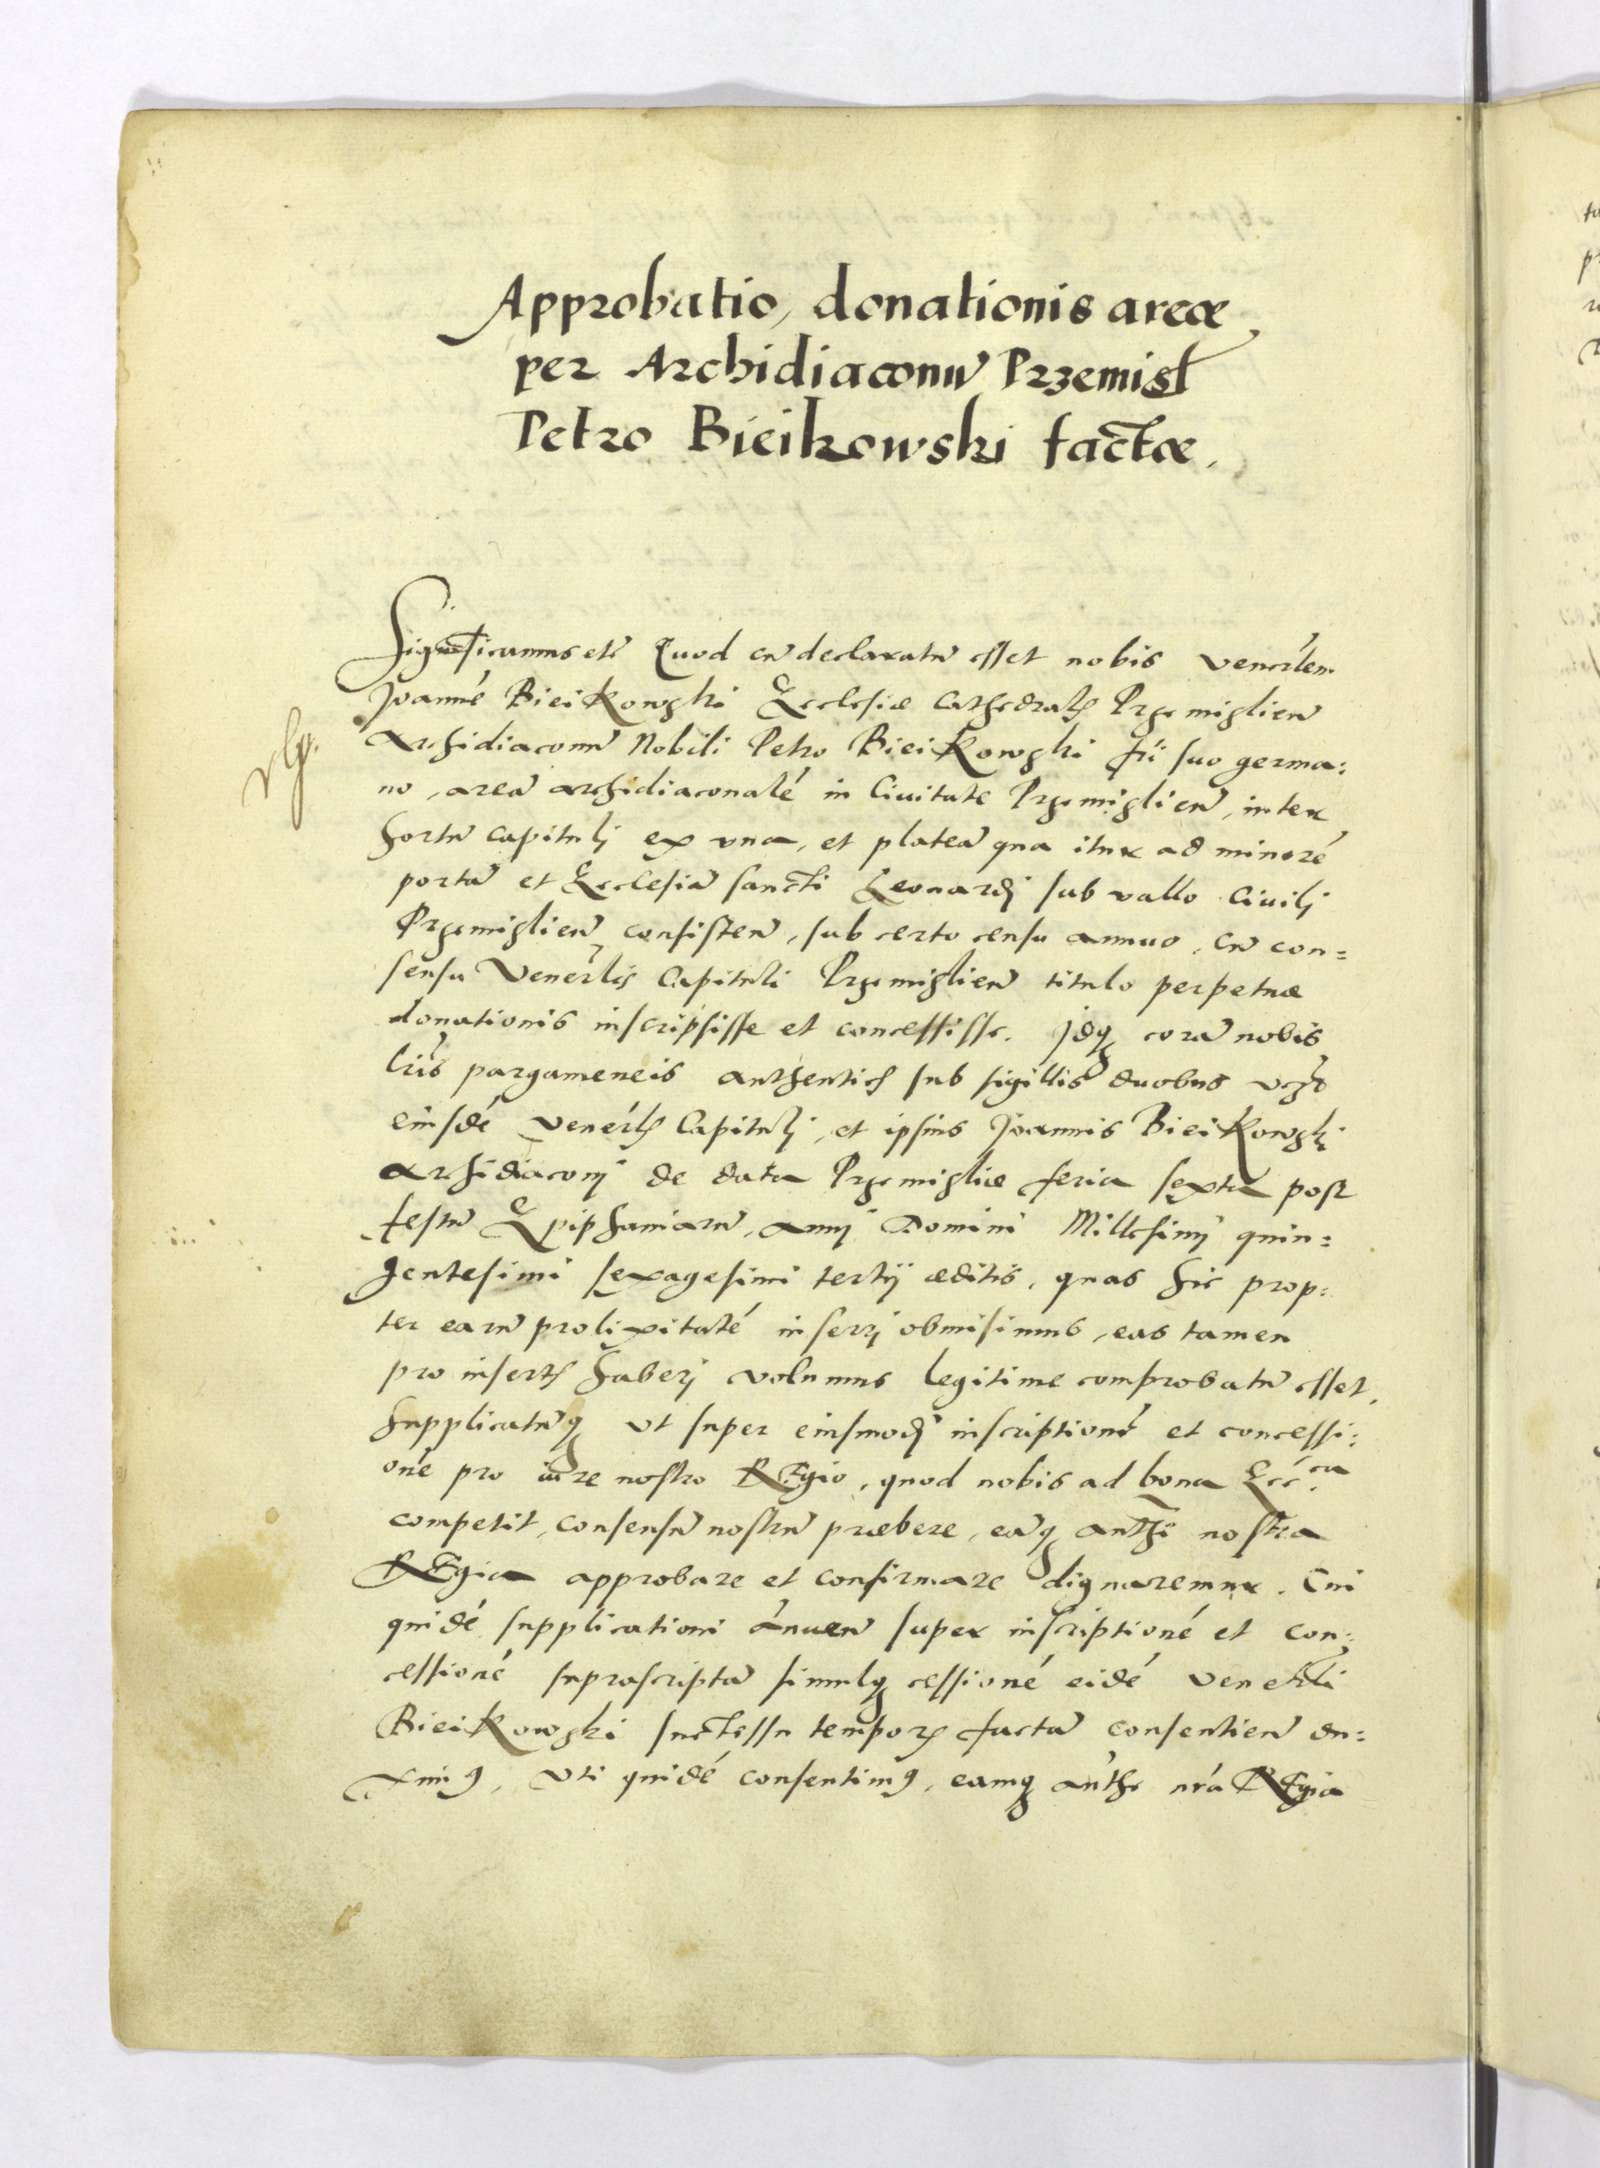 Approbatio, donationis areæ
per Archidiaconū Przemisl
Petro Bieikowski factæ.
Significamus etc̄ Quod cū declaratū esset nobis venerlem
Joannē Bieikowski Ecclesiæ Cathedralis Przemislien̄
Archidiaconū Nobili Petro Bieikowski fri suo germa:
no, areā archidiaconalē in Ciuitate Przemislien̄, inter
hortū capitulj ex vna, et plateā qua itur ad minorē
portā et Ecclesiā sancti Leonardj sub vallo Ciuilj
Przemislien̄ consisten̄, sub certo censu annuo, cū con=
sensu Venerlis Capituli Przemislien̄ titulo perpetuæ
donationis inscripsisse et concessisse. Jdq; corā nobis
lris pargameneis authenticis sub sigillis duobus vcz
eiusdē venerlis Capitulj, et ipsius Joannis Bieikowskj
Archidiaconj de data Przemisliæ feria sexta post
festū Epiphaniarū, annj Domini Millesimj quin=
gentesimi sexagesimi tertij æditis, quas hic prop=
ter earū prolixitatē inserj obmisimus, eas tamen
pro insertis haberj volumus legitime comprobatū esset,
supplicatūq; vt super eiusmodj inscriptionē et concessi:
onē pro iure nostro REgio, quod nobis ad bona Ecc.ca
competit, consensū nostrū præbere, eāq; authē nostra
REgia approbare et confirmare dignaremur. Cui
quidē supplicationi ānuen̄ super inscriptionē et con=
cessionē suprascriptā simulq; cessionē eidē venerli
Bieikowski successu temporis factā consentien̄ du=
ximus, vti quidē consentimus, eamq; authe nrā REgia